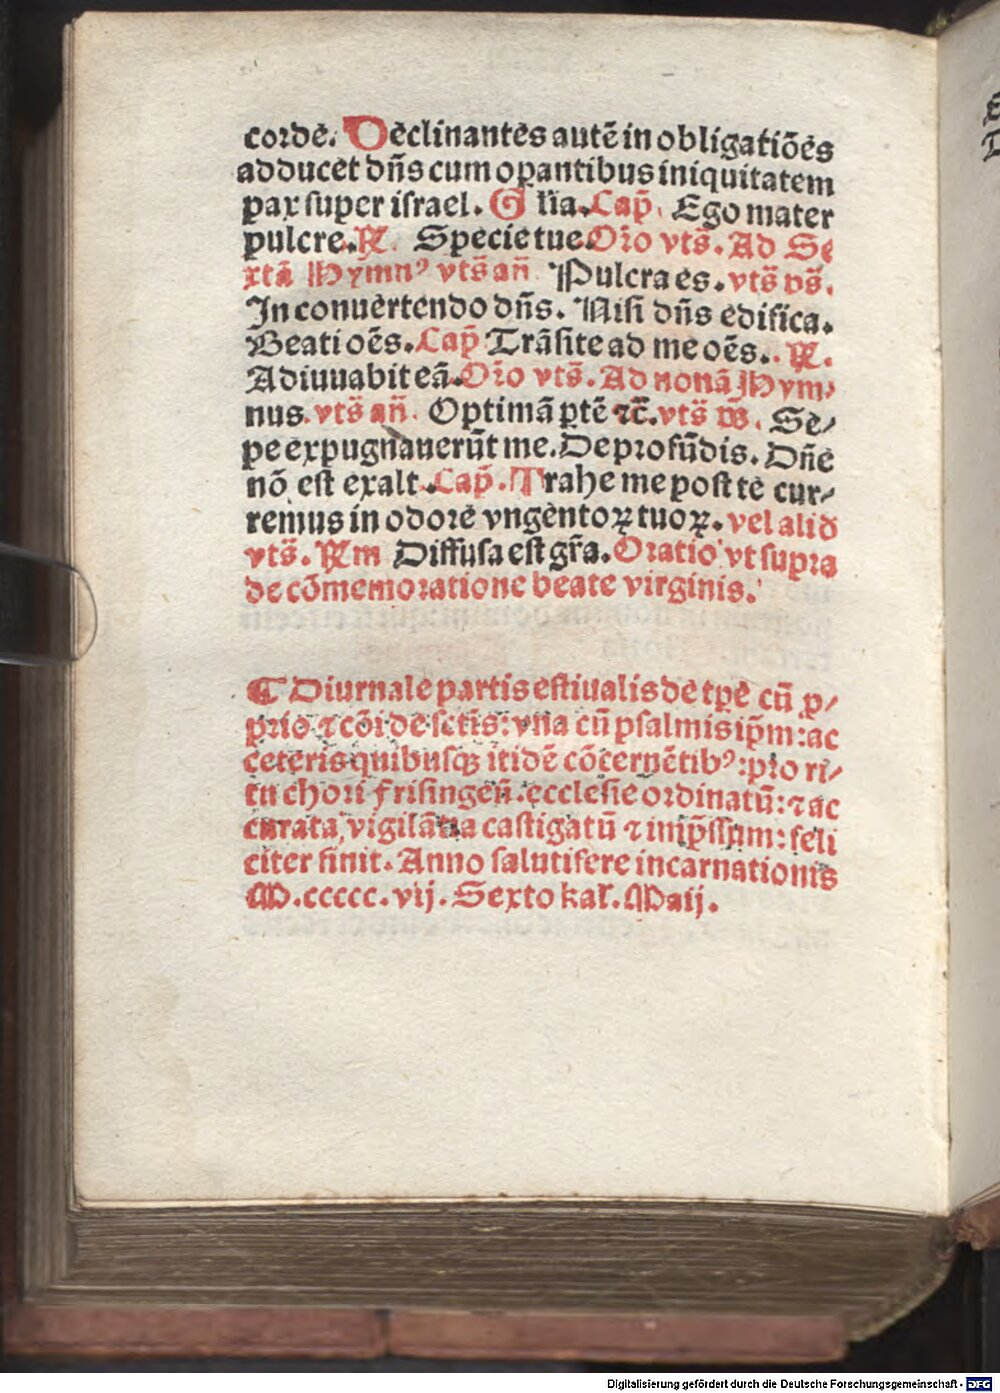 corde. Declinantes autē in obligatiōes
adducet dn̄s cum oꝑantibus iniquitatem
pax super israel. G līa. Cap̄. Ego mater
pulcre. ℟. Specie tue. Or̄o vts̄. Ad Se
xtā Hymnꝰ vts̄ an̄ Pulcra es. vts̄ ps̄.
In conuertendo dn̄s. Nisi dn̄s edifica.
Beati oēs. Cap̄ Trāsite ad me oēs. ℟.
Adiuuabit eā. Or̄o vts̄. Ad nonā Hym⸗
nus. vts̄ an̄. Optimā ꝑtē ⁊c̄. vts̄ ps̄. Se⸗
pe expugnauerūt me. De profūdis. Dn̄e
nō est exalt. Cap̄. Trahe me post te cur⸗
remus in odore vngentoꝝ tuoꝝ. vel aliđ
vts̄. ℟m Diffusa est gr̄a. Oratio vt supra
de cōmemoratione beate virginis.
¶ Diurnale partis estiualis de tp̄e cū ꝓ⸗
prio ⁊ cōi de sctīs: vna cū psalmis ip̄m: ac
ceteris quibusqꝫ itidē cōcernētibꝰ: pro ri⸗
tu chori frisingen̄. ecclesie ordinatū: ⁊ ac
curata vigilātia castigatū ⁊ imp̄ssum: feli
citer finit. Anno salutifere incarnationis
M.ccccc.vij. Sexto kal. Maij.
Digitalisierung gefördert durch die Deutsche Forschungsgemeinschaft - DFG